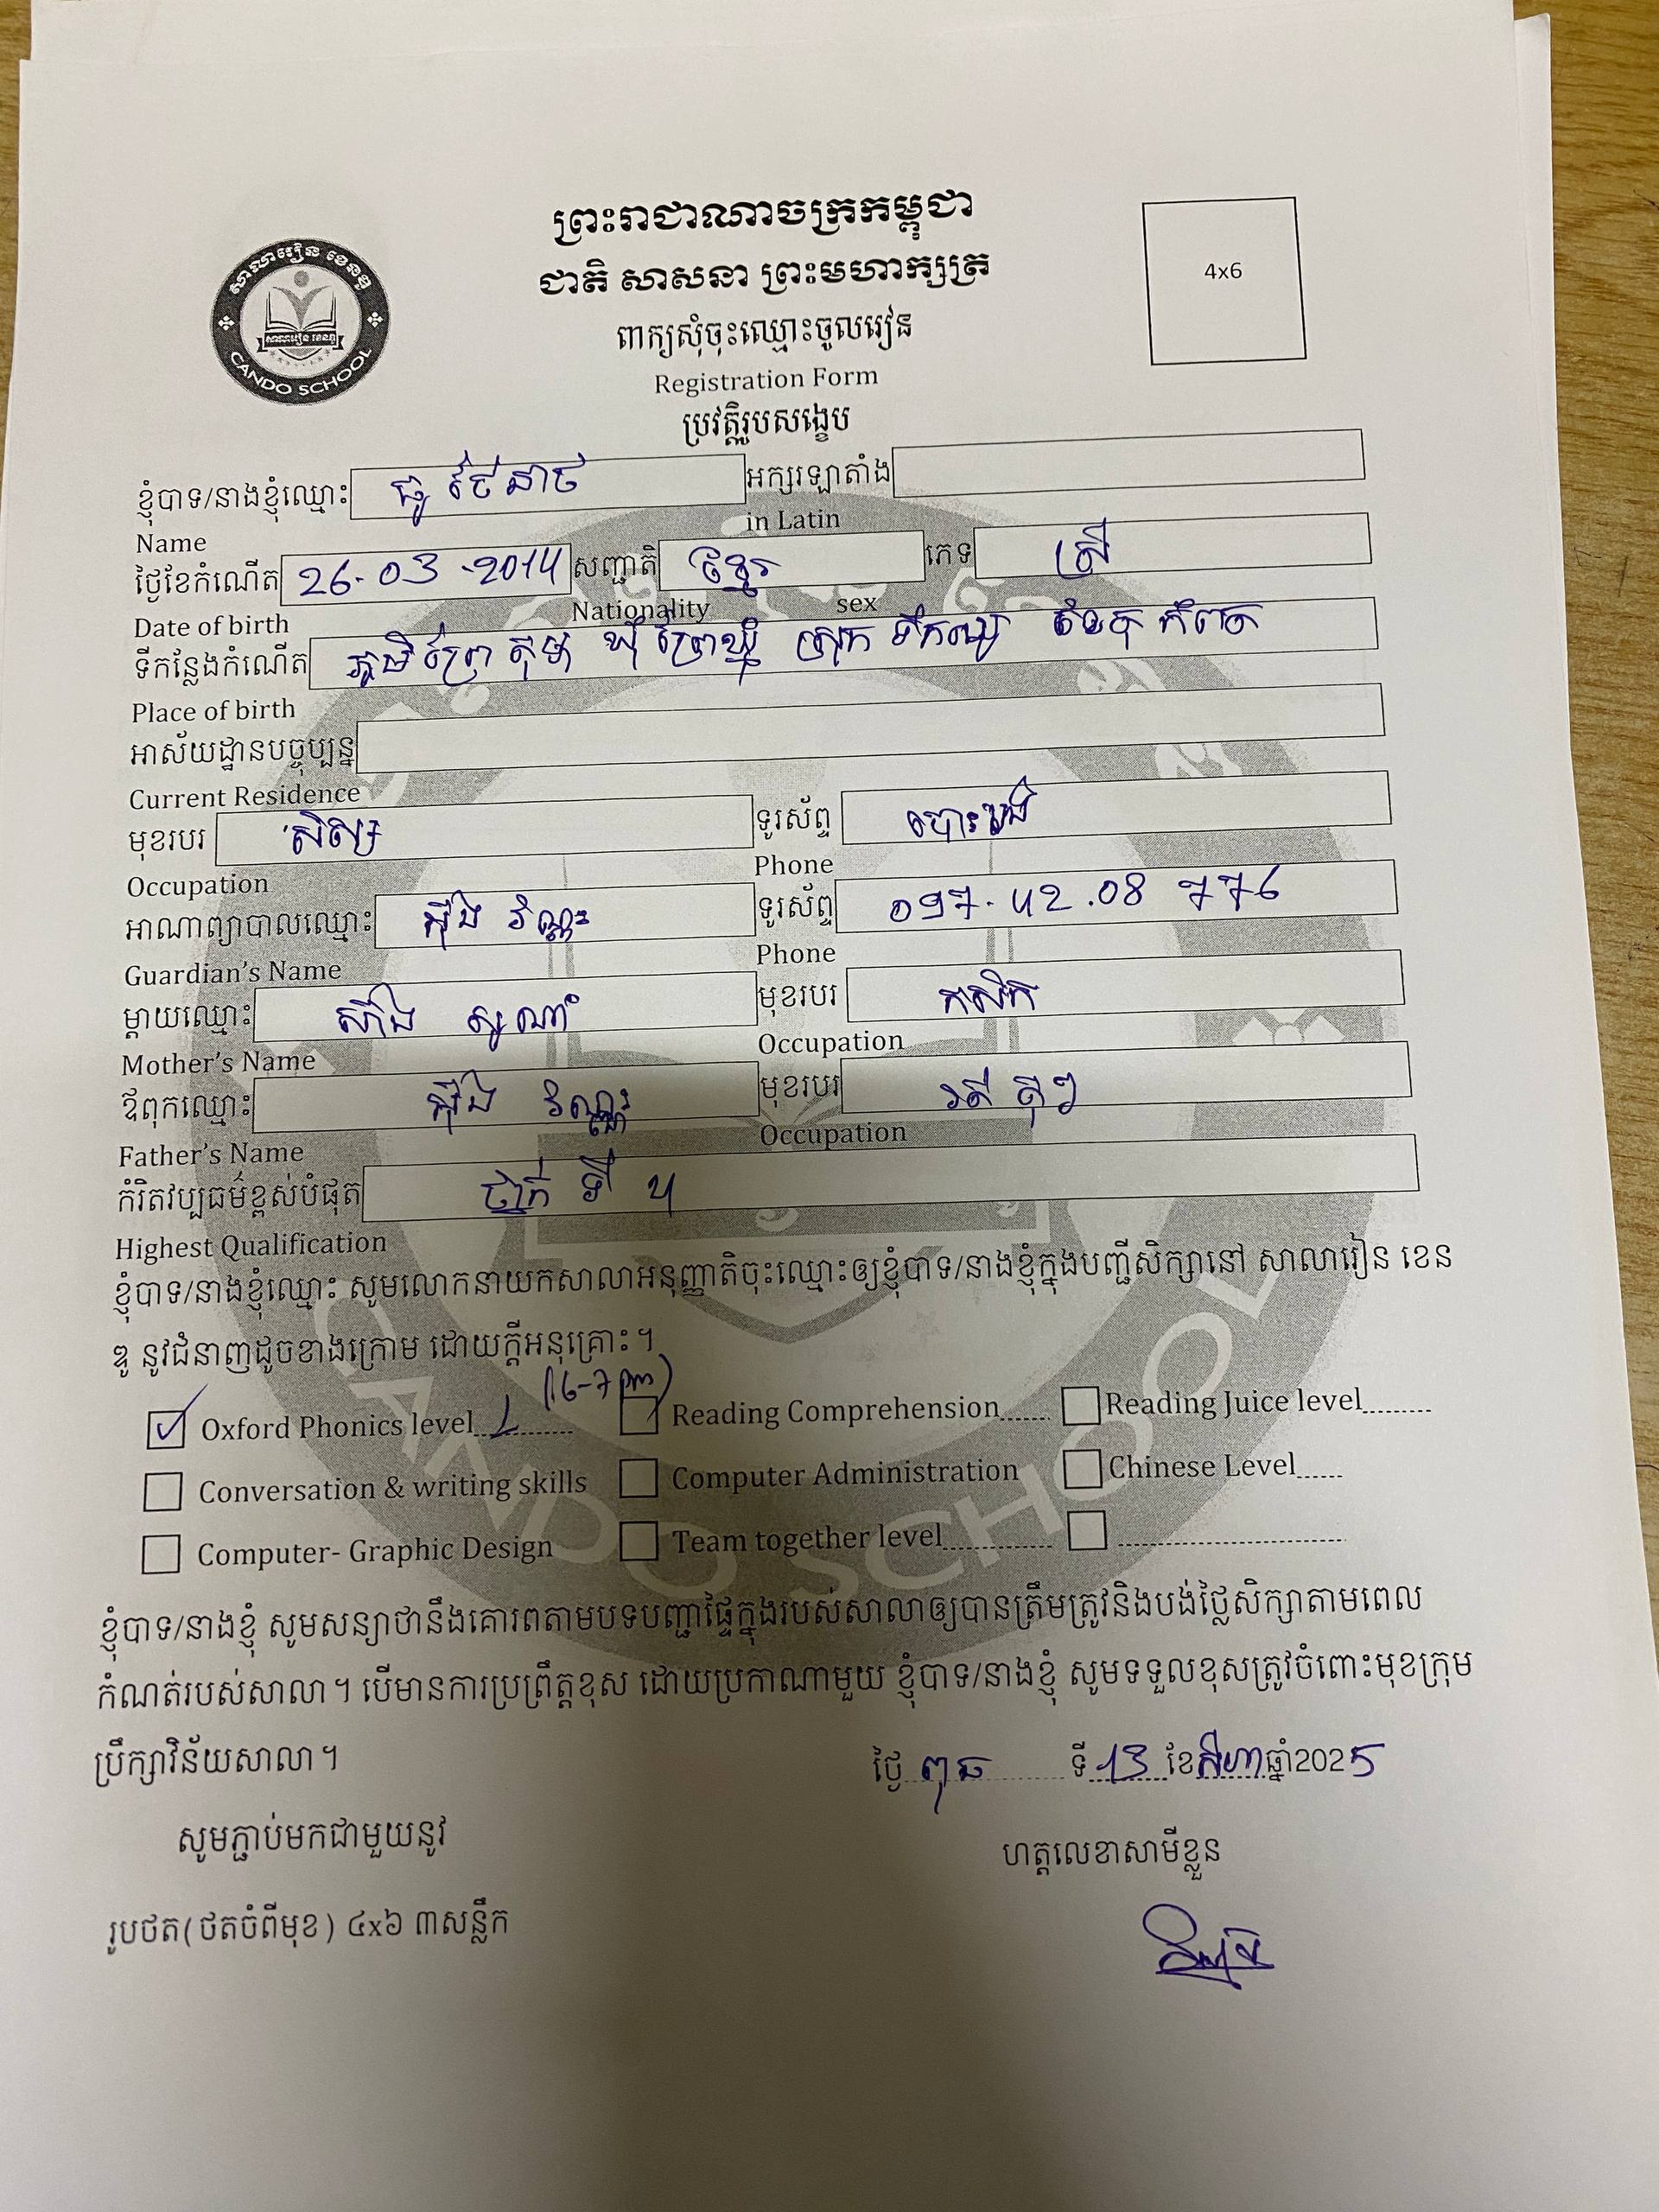 ព្រះរាជាណាចក្រកម្ពុជា
ជាតិ សាសនា ព្រះមហាក្សត្រ
សាលារៀន ខេនឌូ
CANDO SCHOOL
4x6
ពាក្យសុំចុះឈ្មោះចូលរៀន
Registration Form
ប្រវត្តិរូបសង្ខេប
ខ្ញុំបាទ/នាងខ្ញុំឈ្មោះ អក្សរឡាតាំង
Name in Latin
ថ្ងៃខែកំណើត 26-03-2014 សញ្ជាតិ ខ្មែរ ភេទ ស្រី
Date of birth Nationality sex
ទីកន្លែងកំណើត ភូមិ ព្រៃ ឃុំ ព្រៃឃ្មុំ ស្រុក ទឹកឈូ ខេត្ត កំពត
Place of birth
អាស័យដ្ឋានបច្ចុប្បន្ន
Current Residence
មុខរបរ សិស្ស ទូរស័ព្ទ
Occupation Phone
អាណាព្យាបាលឈ្មោះ ស៊ីង វណ្ណះ ទូរស័ព្ទ 097.42.08 776
Guardian's Name Phone
ម្តាយឈ្មោះ មុខរបរ កសិករ
Mother's Name Occupation
ឪពុកឈ្មោះ ស៊ីង វណ្ណះ មុខរបរ
Father's Name Occupation
កំរិតវប្បធម៌ខ្ពស់បំផុត ថ្នាក់ ទី ៤
Highest Qualification
ខ្ញុំបាទ/នាងខ្ញុំឈ្មោះ សូមលោកនាយកសាលាអនុញ្ញាតិចុះឈ្មោះឲ្យខ្ញុំបាទ/នាងខ្ញុំក្នុងបញ្ជីសិក្សានៅ សាលារៀន ខេន
ឌូ នូវជំនាញដូចខាងក្រោម ដោយក្តីអនុគ្រោះ។
Oxford Phonics level 1 (6-7 pm) Reading Comprehension Reading Juice level
Conversation & writing skills Computer Administration Chinese Level
Computer- Graphic Design Team together level
ខ្ញុំបាទ/នាងខ្ញុំ សូមសន្យាថានឹងគោរពតាមបទបញ្ជាផ្ទៃក្នុងរបស់សាលាឲ្យបានត្រឹមត្រូវនិងបង់ថ្លៃសិក្សាតាមពេល
កំណត់របស់សាលា។ បើមានការប្រព្រឹត្តខុស ដោយប្រការណាមួយ ខ្ញុំបាទ/នាងខ្ញុំ សូមទទួលខុសត្រូវចំពោះមុខក្រុម
ប្រឹក្សាវិន័យសាលា។
ថ្ងៃ ពុធ ទី 13 ខែ សីហា ឆ្នាំ2025
សូមភ្ជាប់មកជាមួយនូវ
ហត្ថលេខាសាមីខ្លួន
រូបថត(ថតចំពីមុខ) ៤x៦ ៣សន្លឹក